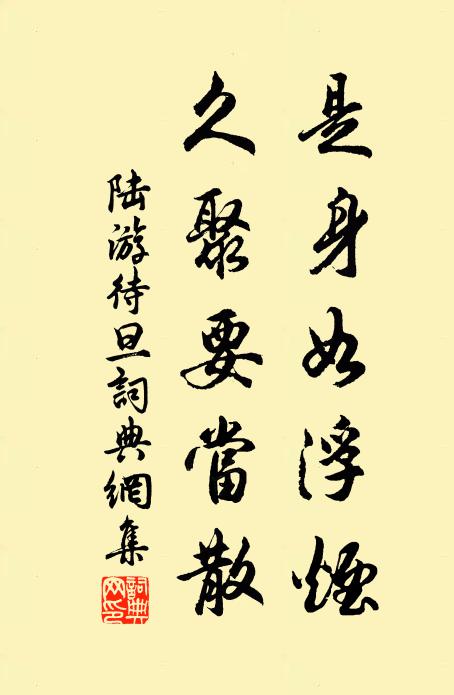 是身如浮煙
久聚要當散
陆游待旦詞典網集
詞典